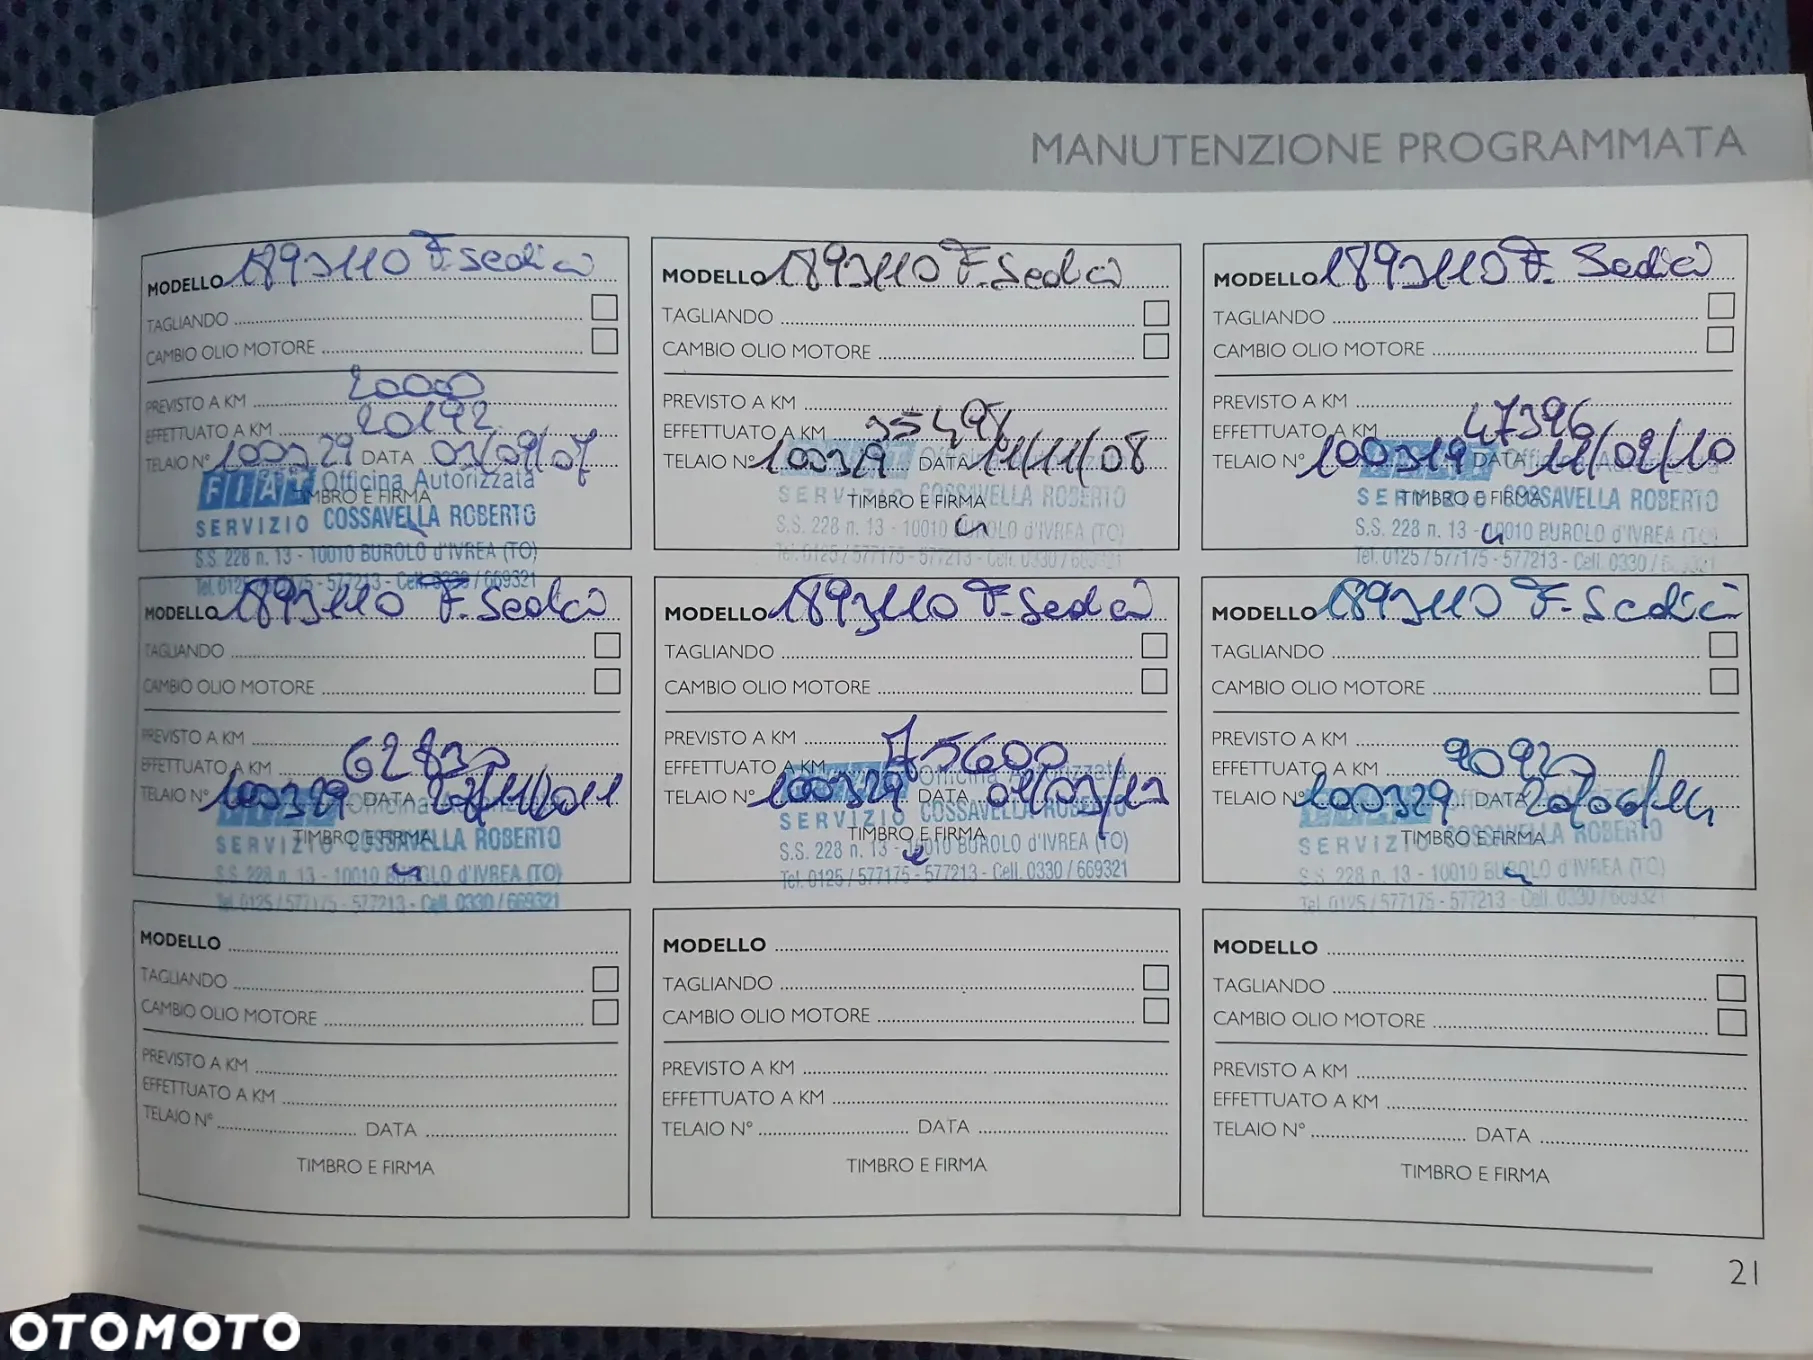 MANUTENZIONE PROGRAMMATA
MODELLO 1893110 F. Sedici
TAGLIANDO
CAMBIO OLIO MOTORE
PREVISTO A KM 20000
EFFETTUATO A KM 20192
TELAIO N° 100329 DATA 03/09/07
FIAT Officina Autorizzata
TIMBRO E FIRMA
SERVIZIO COSSAVELLA ROBERTO
S.S. 228 n. 13 - 10010 BUROLO d'IVREA (TO)
Tel. 0125 - 577213 - Cell. 0330 / 669321
MODELLO 1893110 F. Sedici
TAGLIANDO
CAMBIO OLIO MOTORE
PREVISTO A KM
EFFETTUATO A KM 35498
TELAIO N° 100329 DATA 11/11/08
TIMBRO E FIRMA
SERVIZIO COSSAVELLA ROBERTO
S.S. 228 n. 13 - 10010 BUROLO d'IVREA (TO)
Tel. 0125 / 577175 - 577213 - Cell. 0330 /
MODELLO 1893110 F. Sedici
TAGLIANDO
CAMBIO OLIO MOTORE
PREVISTO A KM
EFFETTUATO A KM 47396
TELAIO N° 100329 DATA 11/02/10
TIMBRO E FIRMA
SERVIZIO COSSAVELLA ROBERTO
S.S. 228 n. 13 - 10010 BUROLO d'IVREA (TO)
Tel. 0125 / 577175 - 577213 - Cell. 0330 /
MODELLO 1893110 F. Sedici
TAGLIANDO
CAMBIO OLIO MOTORE
PREVISTO A KM
EFFETTUATO A KM
TELAIO N° 100329 DATA
Officina
TIMBRO E FIRMA
SERVIZIO COSSAVELLA ROBERTO
S.S. 228 n. 13 - 10010 BUROLO d'IVREA (TO)
Tel. 0125 / 577175 - 577213 - Cell. 0330 / 669321
MODELLO 1893110 F. Sedici
TAGLIANDO
CAMBIO OLIO MOTORE
PREVISTO A KM
EFFETTUATO A KM 75600
Officina Autorizzata
TELAIO N° 100329 DATA
SERVIZIO COSSAVELLA ROBERTO
TIMBRO E FIRMA
S.S. 228 n. 13 - 10010 BUROLO d'IVREA (TO)
Tel. 0125 / 577175 - 577213 - Cell. 0330 / 669321
MODELLO 1893110 F. Sedici
TAGLIANDO
CAMBIO OLIO MOTORE
PREVISTO A KM
EFFETTUATO A KM
TELAIO N° 100329 DATA 20/06/14
TIMBRO E FIRMA
SERVIZIO COSSAVELLA ROBERTO
S.S. 228 n. 13 - 10010 BUROLO d'IVREA (TO)
Tel. 0125 / 577175 - 577213 - Cell. 0330 /
MODELLO
TAGLIANDO
CAMBIO OLIO MOTORE
PREVISTO A KM
EFFETTUATO A KM
TELAIO N° DATA
TIMBRO E FIRMA
MODELLO
TAGLIANDO
CAMBIO OLIO MOTORE
PREVISTO A KM
EFFETTUATO A KM
TELAIO N° DATA
TIMBRO E FIRMA
MODELLO
TAGLIANDO
CAMBIO OLIO MOTORE
PREVISTO A KM
EFFETTUATO A KM
TELAIO N° DATA
TIMBRO E FIRMA
21
OTOMOTO